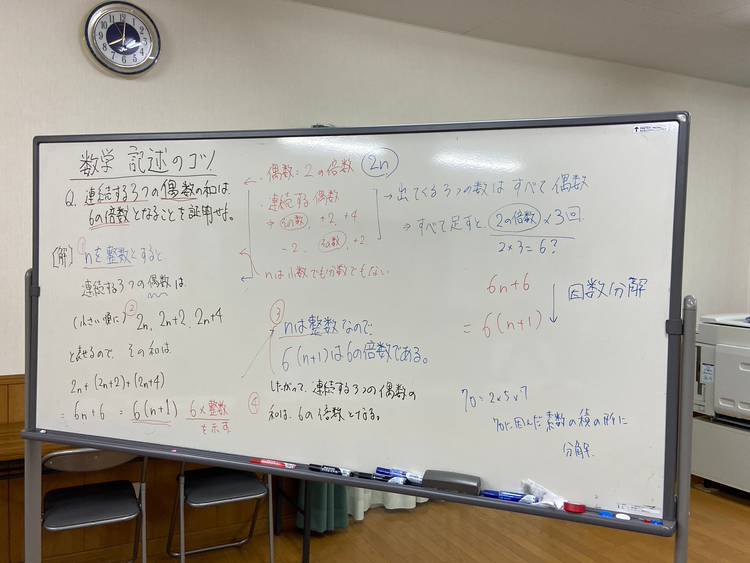 数学 記述のコツ
Q. 連続する3つの偶数の和は
6の倍数となることを証明せよ。
[解] ① nを整数とすると
連続する3つの偶数は
(小さい順に) ② 2n, 2n+2, 2n+4
と表せるので、その和は、
2n+(2n+2)+(2n+4)
= 6n+6 = 6(n+1) 6×整数
を示す
・偶数:2の倍数 2n
・連続する偶数
⇒ その数, +2, +4
-2, その数, +2
nは小数でも分数でもない
③
nは整数なので、
6(n+1)は6の倍数である。
④ したがって、連続する3つの偶数の
和は、6の倍数となる。
→ 出てくる3つの数は すべて 偶数
⇒ すべて足すと、2の倍数×3回
2×3=6?
6n+6
= 6(n+1)
↓ 因数分解
70=2×5×7
素数の積の形に
分解